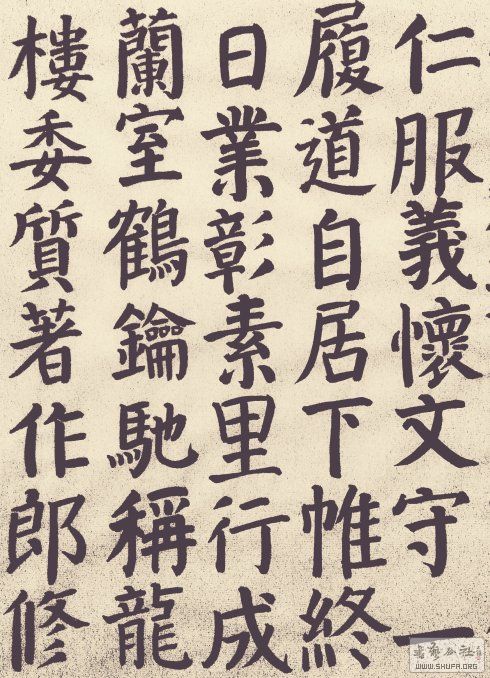 仁服義懷文守一
履道自居下帷終
日業彰素里行成
蘭室鶴鑰馳稱龍
樓委質著作郎修
WWW.SHUFA.ORG